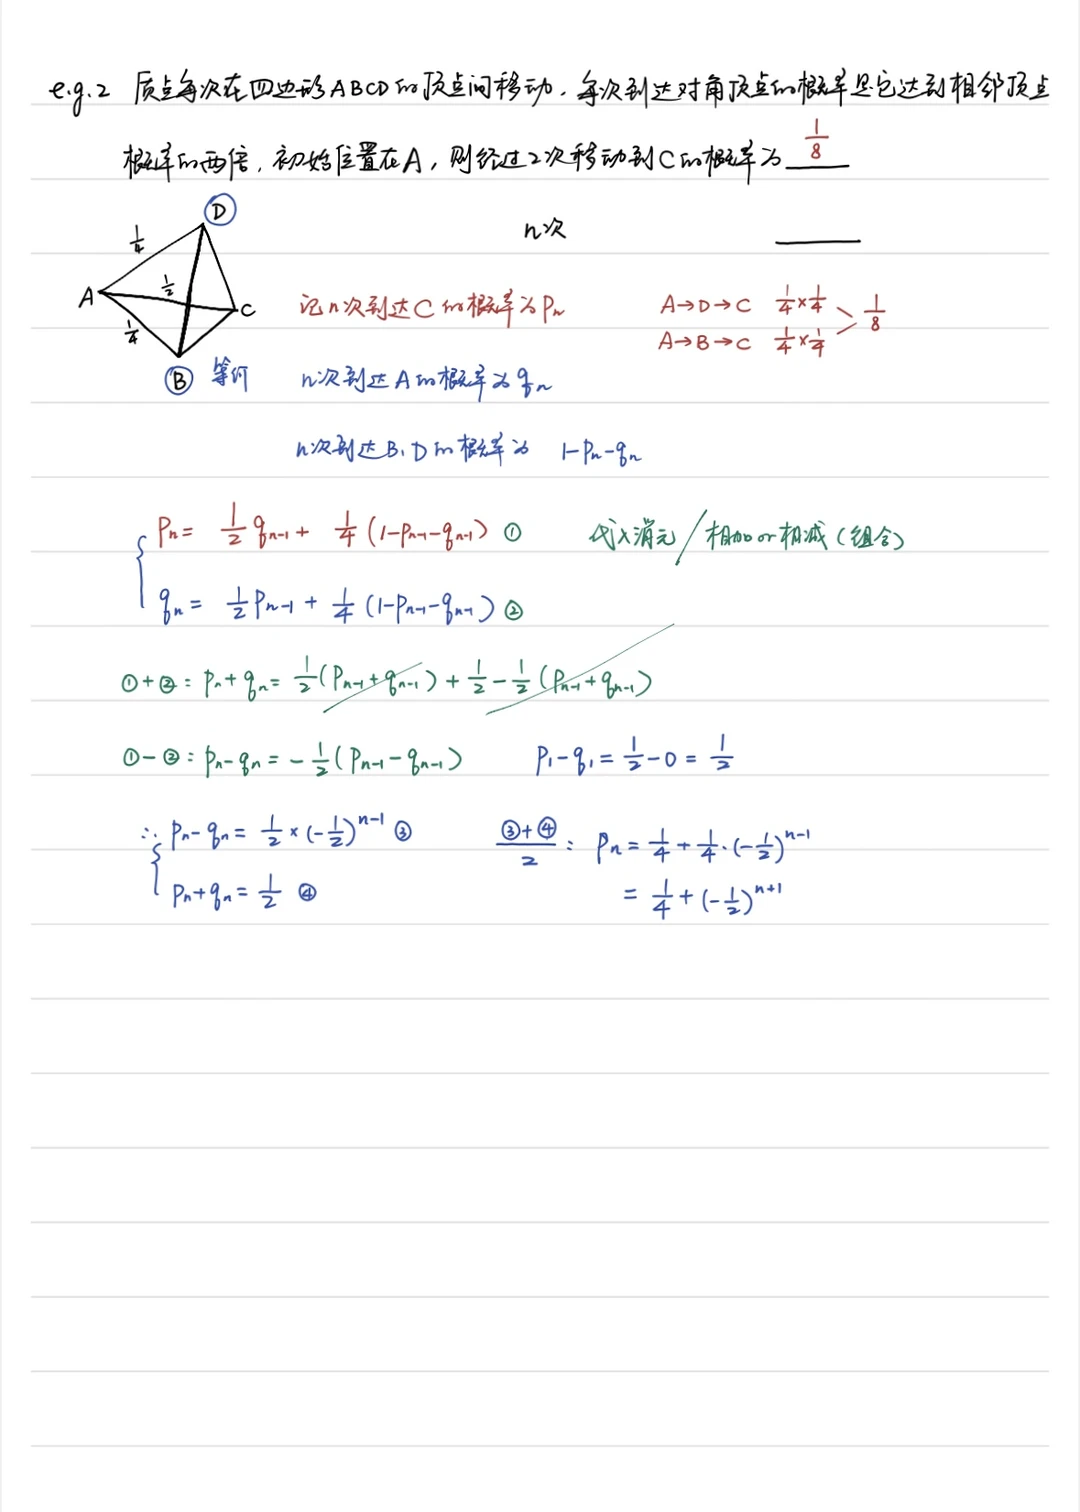 e.g.2 质点每次在四边形ABCD的顶点间移动，每次到达对角顶点的概率是它达到相邻顶点
概率的两倍，初始位置在A，则经过2次移动到C的概率为 1/8
n次 ____
D
1/4
A 1/2 C
1/4
B 等价
记n次到达C的概率为Pn
A→D→C 1/4×1/4
A→B→C 1/4×1/4 > 1/8
n次到达A的概率为qn
n次到达B、D的概率为 1-Pn-qn
Pn = 1/2 qn-1 + 1/4 (1-Pn-1-qn-1) ①
代入消元/相加or相减(组合)
qn = 1/2 Pn-1 + 1/4 (1-Pn-1-qn-1) ②
①+②: Pn+qn = 1/2(Pn-1+qn-1) + 1/2 - 1/2(Pn-1+qn-1)
①-②: Pn-qn = -1/2(Pn-1-qn-1) P1-q1 = 1/2-0 = 1/2
∴ { Pn-qn = 1/2×(-1/2)^n-1 ③ (③+④)/2: Pn = 1/4 + 1/4·(-1/2)^n-1
Pn+qn = 1/2 ④ = 1/4 + (-1/2)^n+1